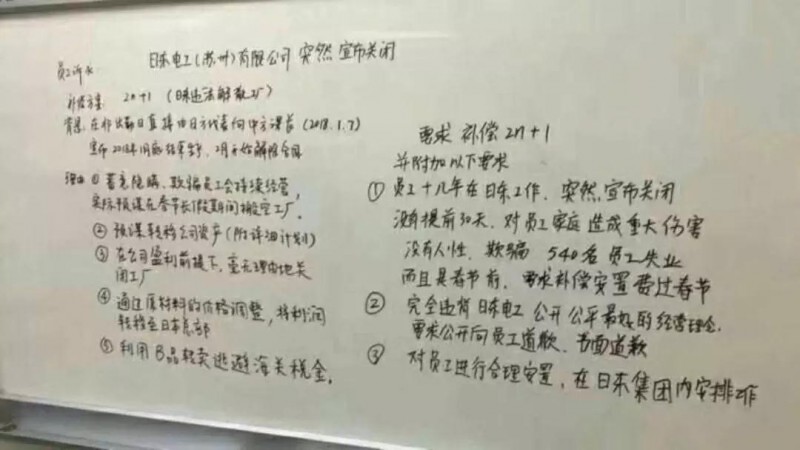 日东电工(苏州)有限公司 突然宣布关闭
员工诉求
补偿方案: 2n+1 (日东违法解散工厂)
背景: 在非出勤日直接由日方代表向中方课长 (2018.1.7)
宣布2018年1月底结束生产, 2月开始解除合同
理由 ① 蓄意隐瞒、欺骗员工会持续经营,
实际预谋在春节长假期间搬空工厂。
② 预谋转移公司资产 (附详细计划)
③ 在公司盈利前提下, 毫无理由地关
闭工厂
④ 通过原材料的价格调整, 将利润
转移至日本总部
⑤ 利用B品转卖逃避海关税金。
要求 补偿 2n+1
并附加以下要求
① 员工十几年在日东工作, 突然宣布关闭
没有提前30天, 对员工家庭造成重大伤害
没有人性, 欺骗 540名员工失业
而且是春节前, 要求补偿安置费过春节
② 完全违背日东电工公开公平最好的经营理念.
要求公开向员工道歉、书面道歉
③ 对员工进行合理安置, 在日东集团内安排工作